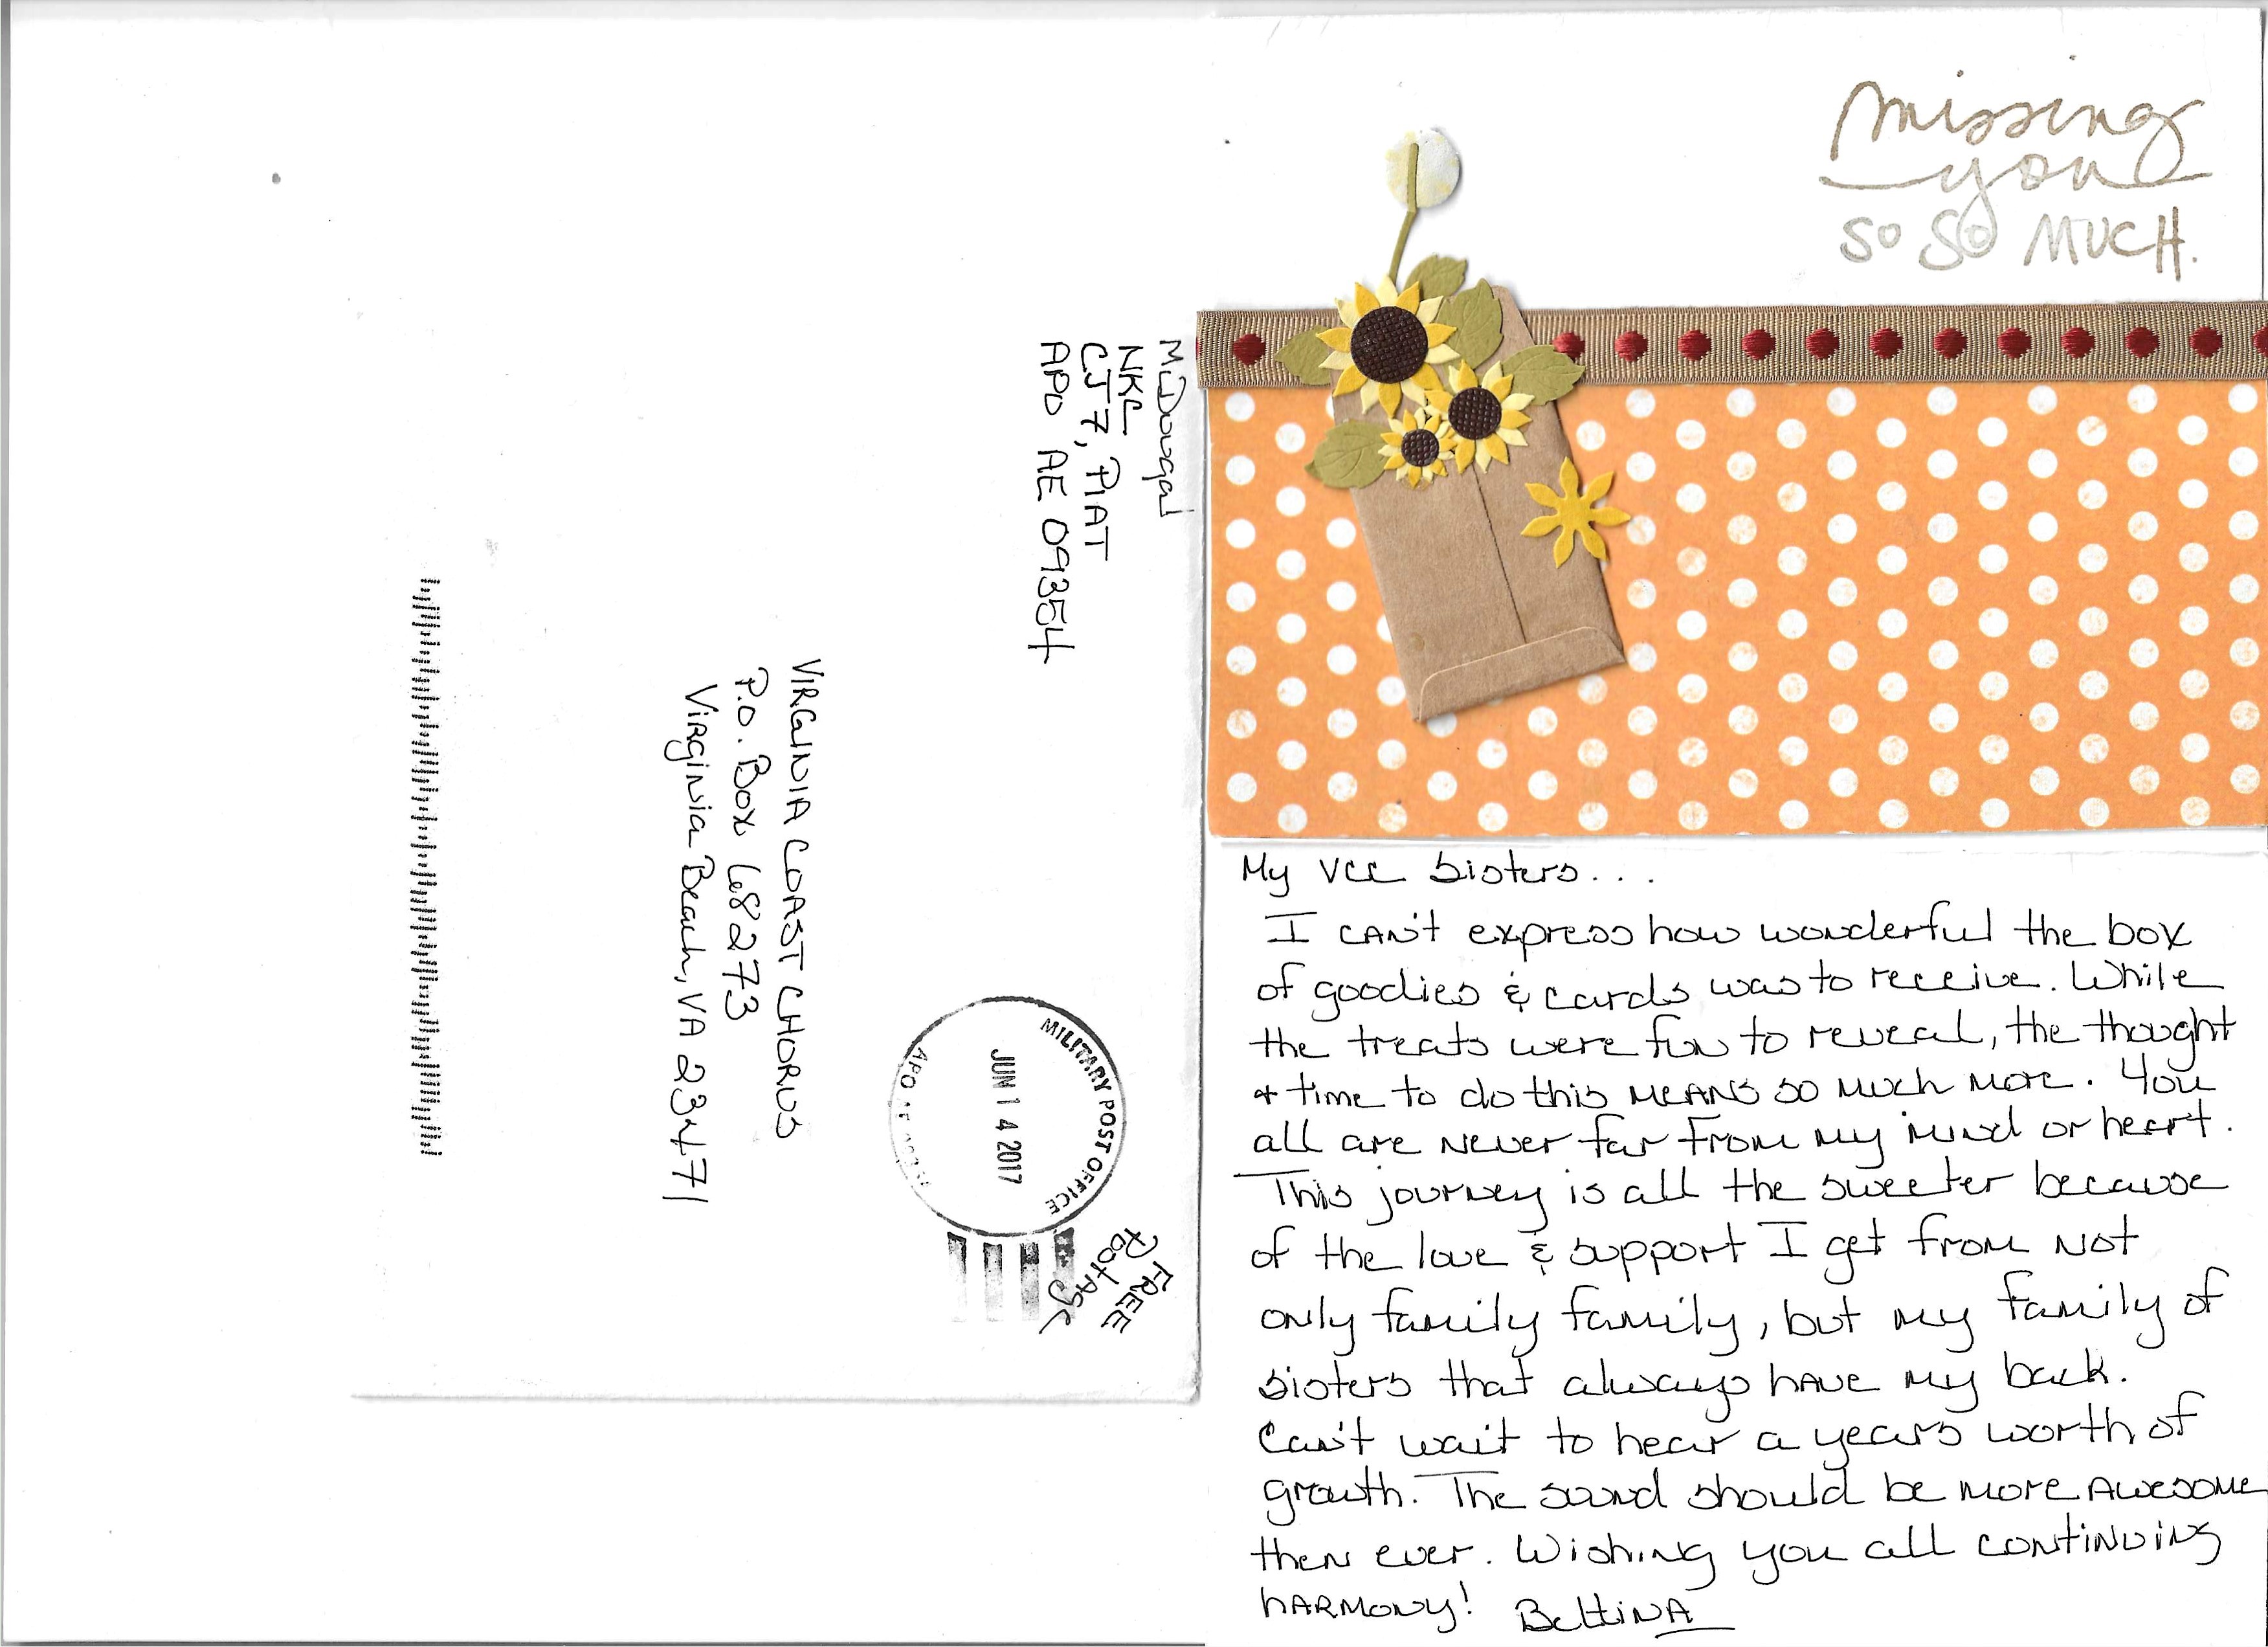 McDougal
NKC
CJ7, PIAT
APO AE 09354
VIRGINIA COAST CHORUS
P.O. Box 68273
Virginia Beach, VA 23471
MILITARY POST OFFICE
JUN 14 2017
APO
FREE
Postage
missing
you
so so MUCH.
My VCC Sisters...
I can't express how wonderful the box
of goodies & cards was to receive. While
the treats were fun to reveal, the thought
+ time to do this MEANS so much more. You
all are never far from my mind or heart.
This journey is all the sweeter because
of the love & support I get from not
only family family, but my family of
sisters that always have my back.
Can't wait to hear a years worth of
growth. The sound should be more awesome
then ever. Wishing you all continuing
HARMONY! Bettina